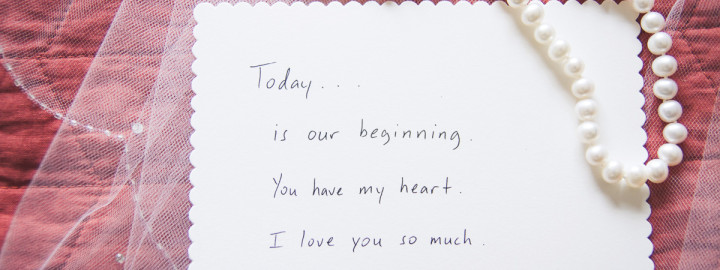 Today...
is our beginning.
You have my heart.
I love you so much.